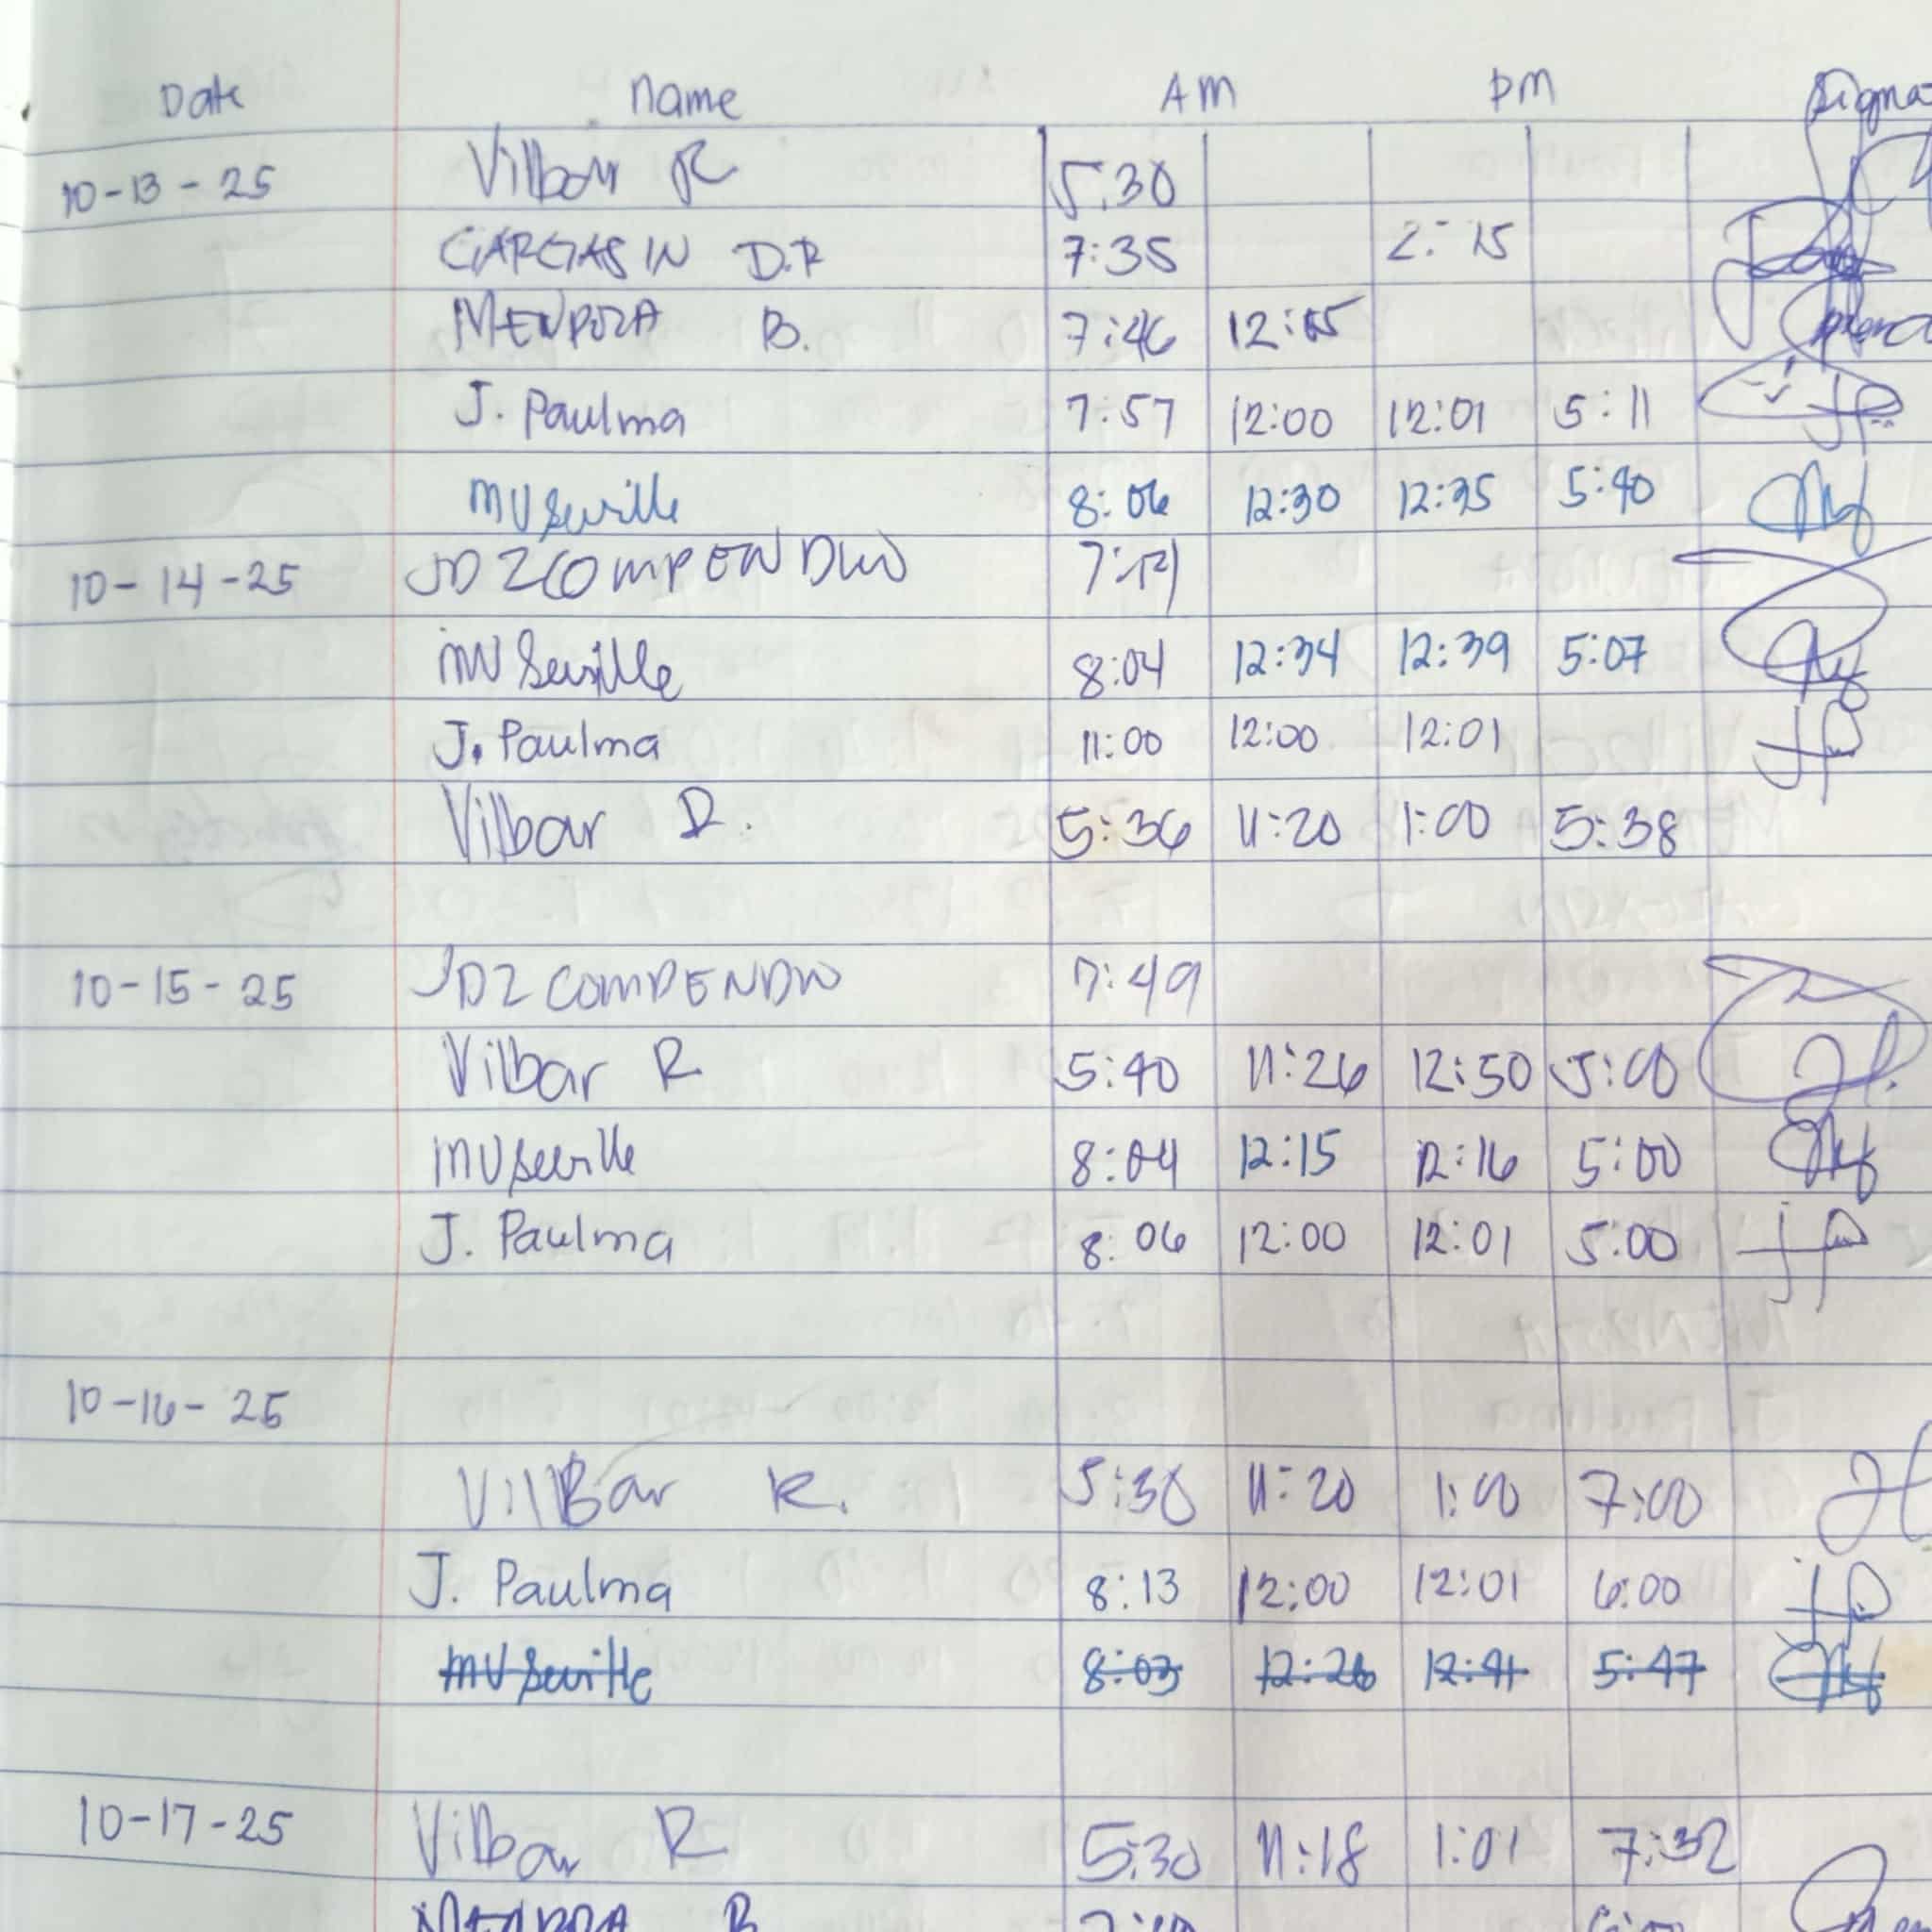 Date Name AM PM
10-13-25 Vilbar R 5:30
GARGASIN D.R 7:35 2:15
MENDOZA B. 7:46 12:15
J. Paulma 7:57 12:00 12:01 5:11
MV Seville 8:06 12:30 12:35 5:40
10-14-25 JDZ COMPENDIO
MV Seville 8:04 12:34 12:39 5:07
J. Paulma 11:00 12:00 12:01
Vilbar R. 5:36 11:20 1:00 5:38
10-15-25 JDZ COMPENDIO 7:49
Vilbar R 5:40 11:26 12:50 5:00
MV Seville 8:04 12:15 12:16 5:00
J. Paulma 8:06 12:00 12:01 5:00
10-16-25
VilBar R. 5:30 11:20 1:00 7:00
J. Paulma 8:13 12:00 12:01 6:00
MV Seville 8:03 12:26 12:41 5:47
10-17-25 Vilbar R 5:30 11:18 1:01 7:32